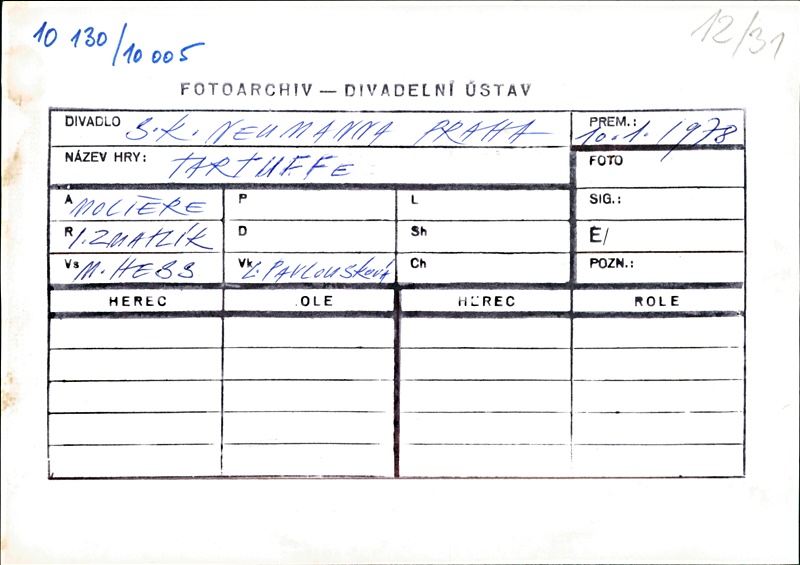 10 130/10 005
12/31
FOTOARCHIV — DIVADELNÍ ÚSTAV
DIVADLO S.K. NEUMANNA PRAHA PREM.: 10.1.1978
NÁZEV HRY: TARTUFFE FOTO
A MOLIÈRE P L SIG.:
R I. ZMATLÍK D Sh É/
Vs M. HESS Vk L. PAVLOUSKOVÁ Ch POZN.:
HEREC OLE HEREC ROLE